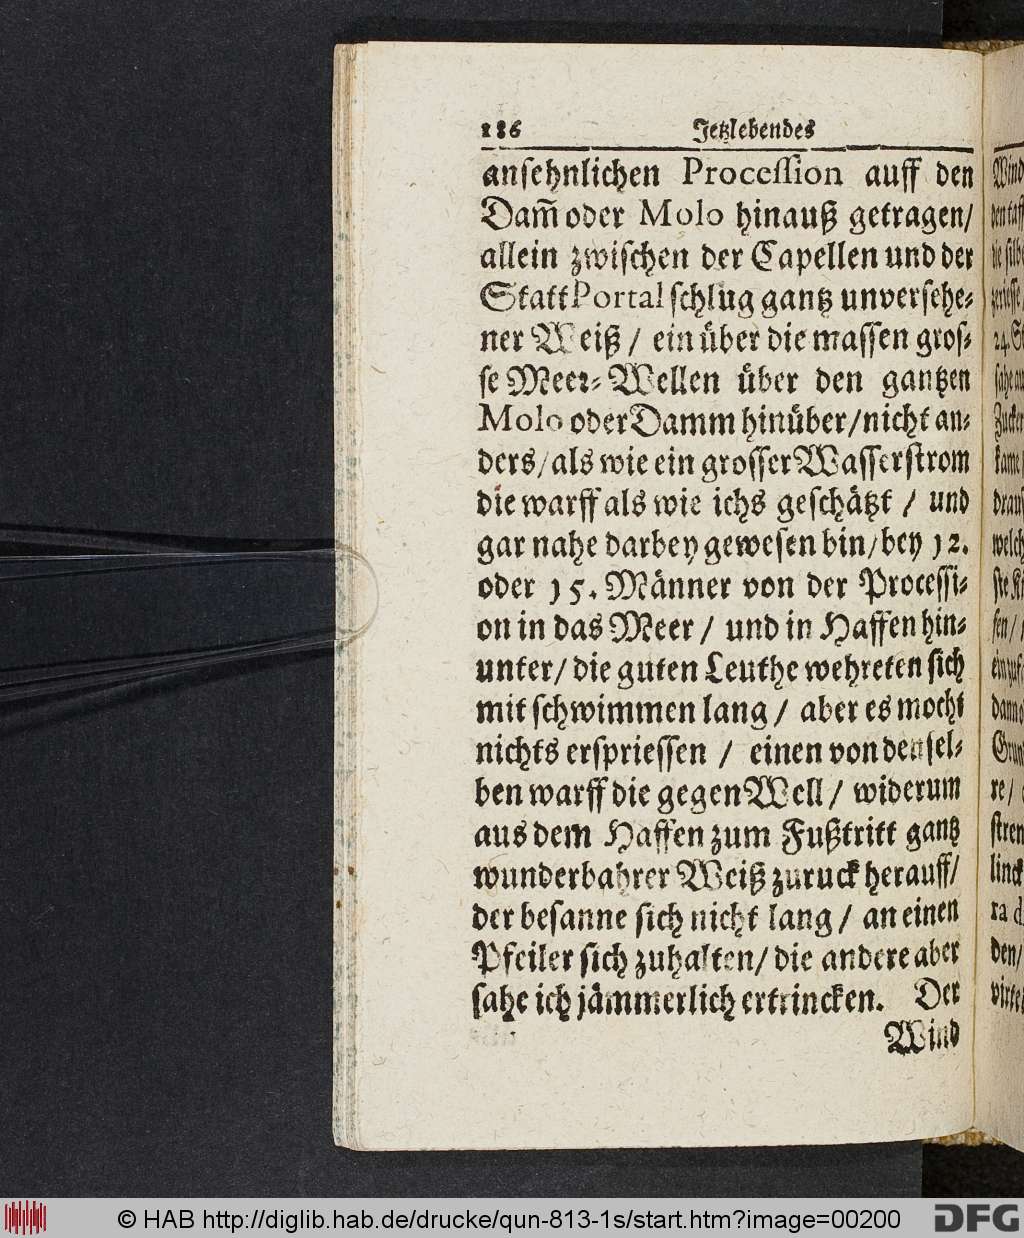 186 Jetzlebendes
ansehnlichen Procession auff den
Dam̄ oder Molo hinauß getragen/
allein zwischen der Capellen und der
Statt Portal schlug gantz unversehe-
ner Weiß / ein über die massen gros-
se Meer-Wellen über den gantzen
Molo oder Damm hinüber/nicht an-
ders/als wie ein grosser Wasserstrom
die warff als wie ichs geschätzt / und
gar nahe darbey gewesen bin/bey 12.
oder 15. Männer von der Processi-
on in das Meer / und in Haffen hin-
unter/ die guten Leuthe wehreten sich
mit schwimmen lang / aber es mocht
nichts erspriessen / einen von densel-
ben warff die gegen Well / widerum
aus dem Haffen zum Fußtritt gantz
wunderbahrer Weiß zuruck herauff/
der besanne sich nicht lang / an einen
Pfeiler sich zuhalten/ die andere aber
sahe ich jämmerlich ertrincken. Der
Wind
© HAB http://diglib.hab.de/drucke/qun-813-1s/start.htm?image=00200
DFG